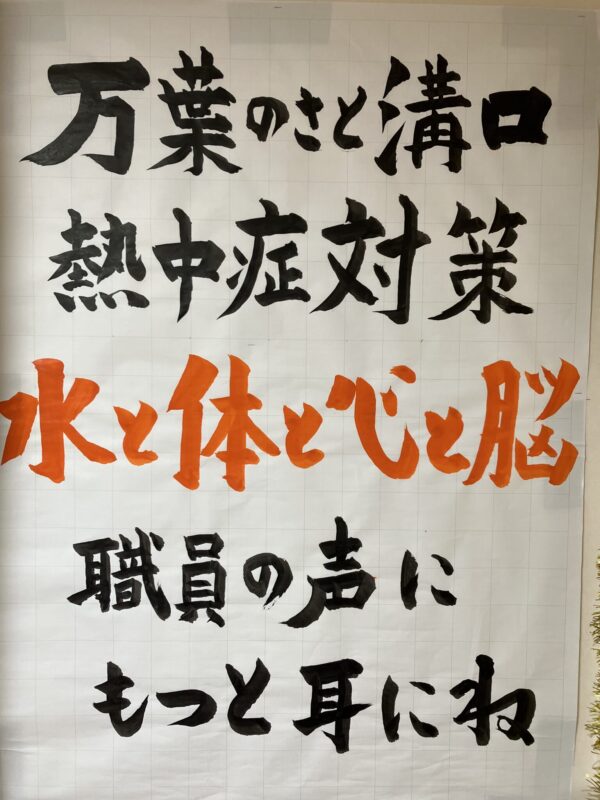 万葉のさと溝口
熱中症対策
水と体と心と脳
職員の声に
もっと耳にね